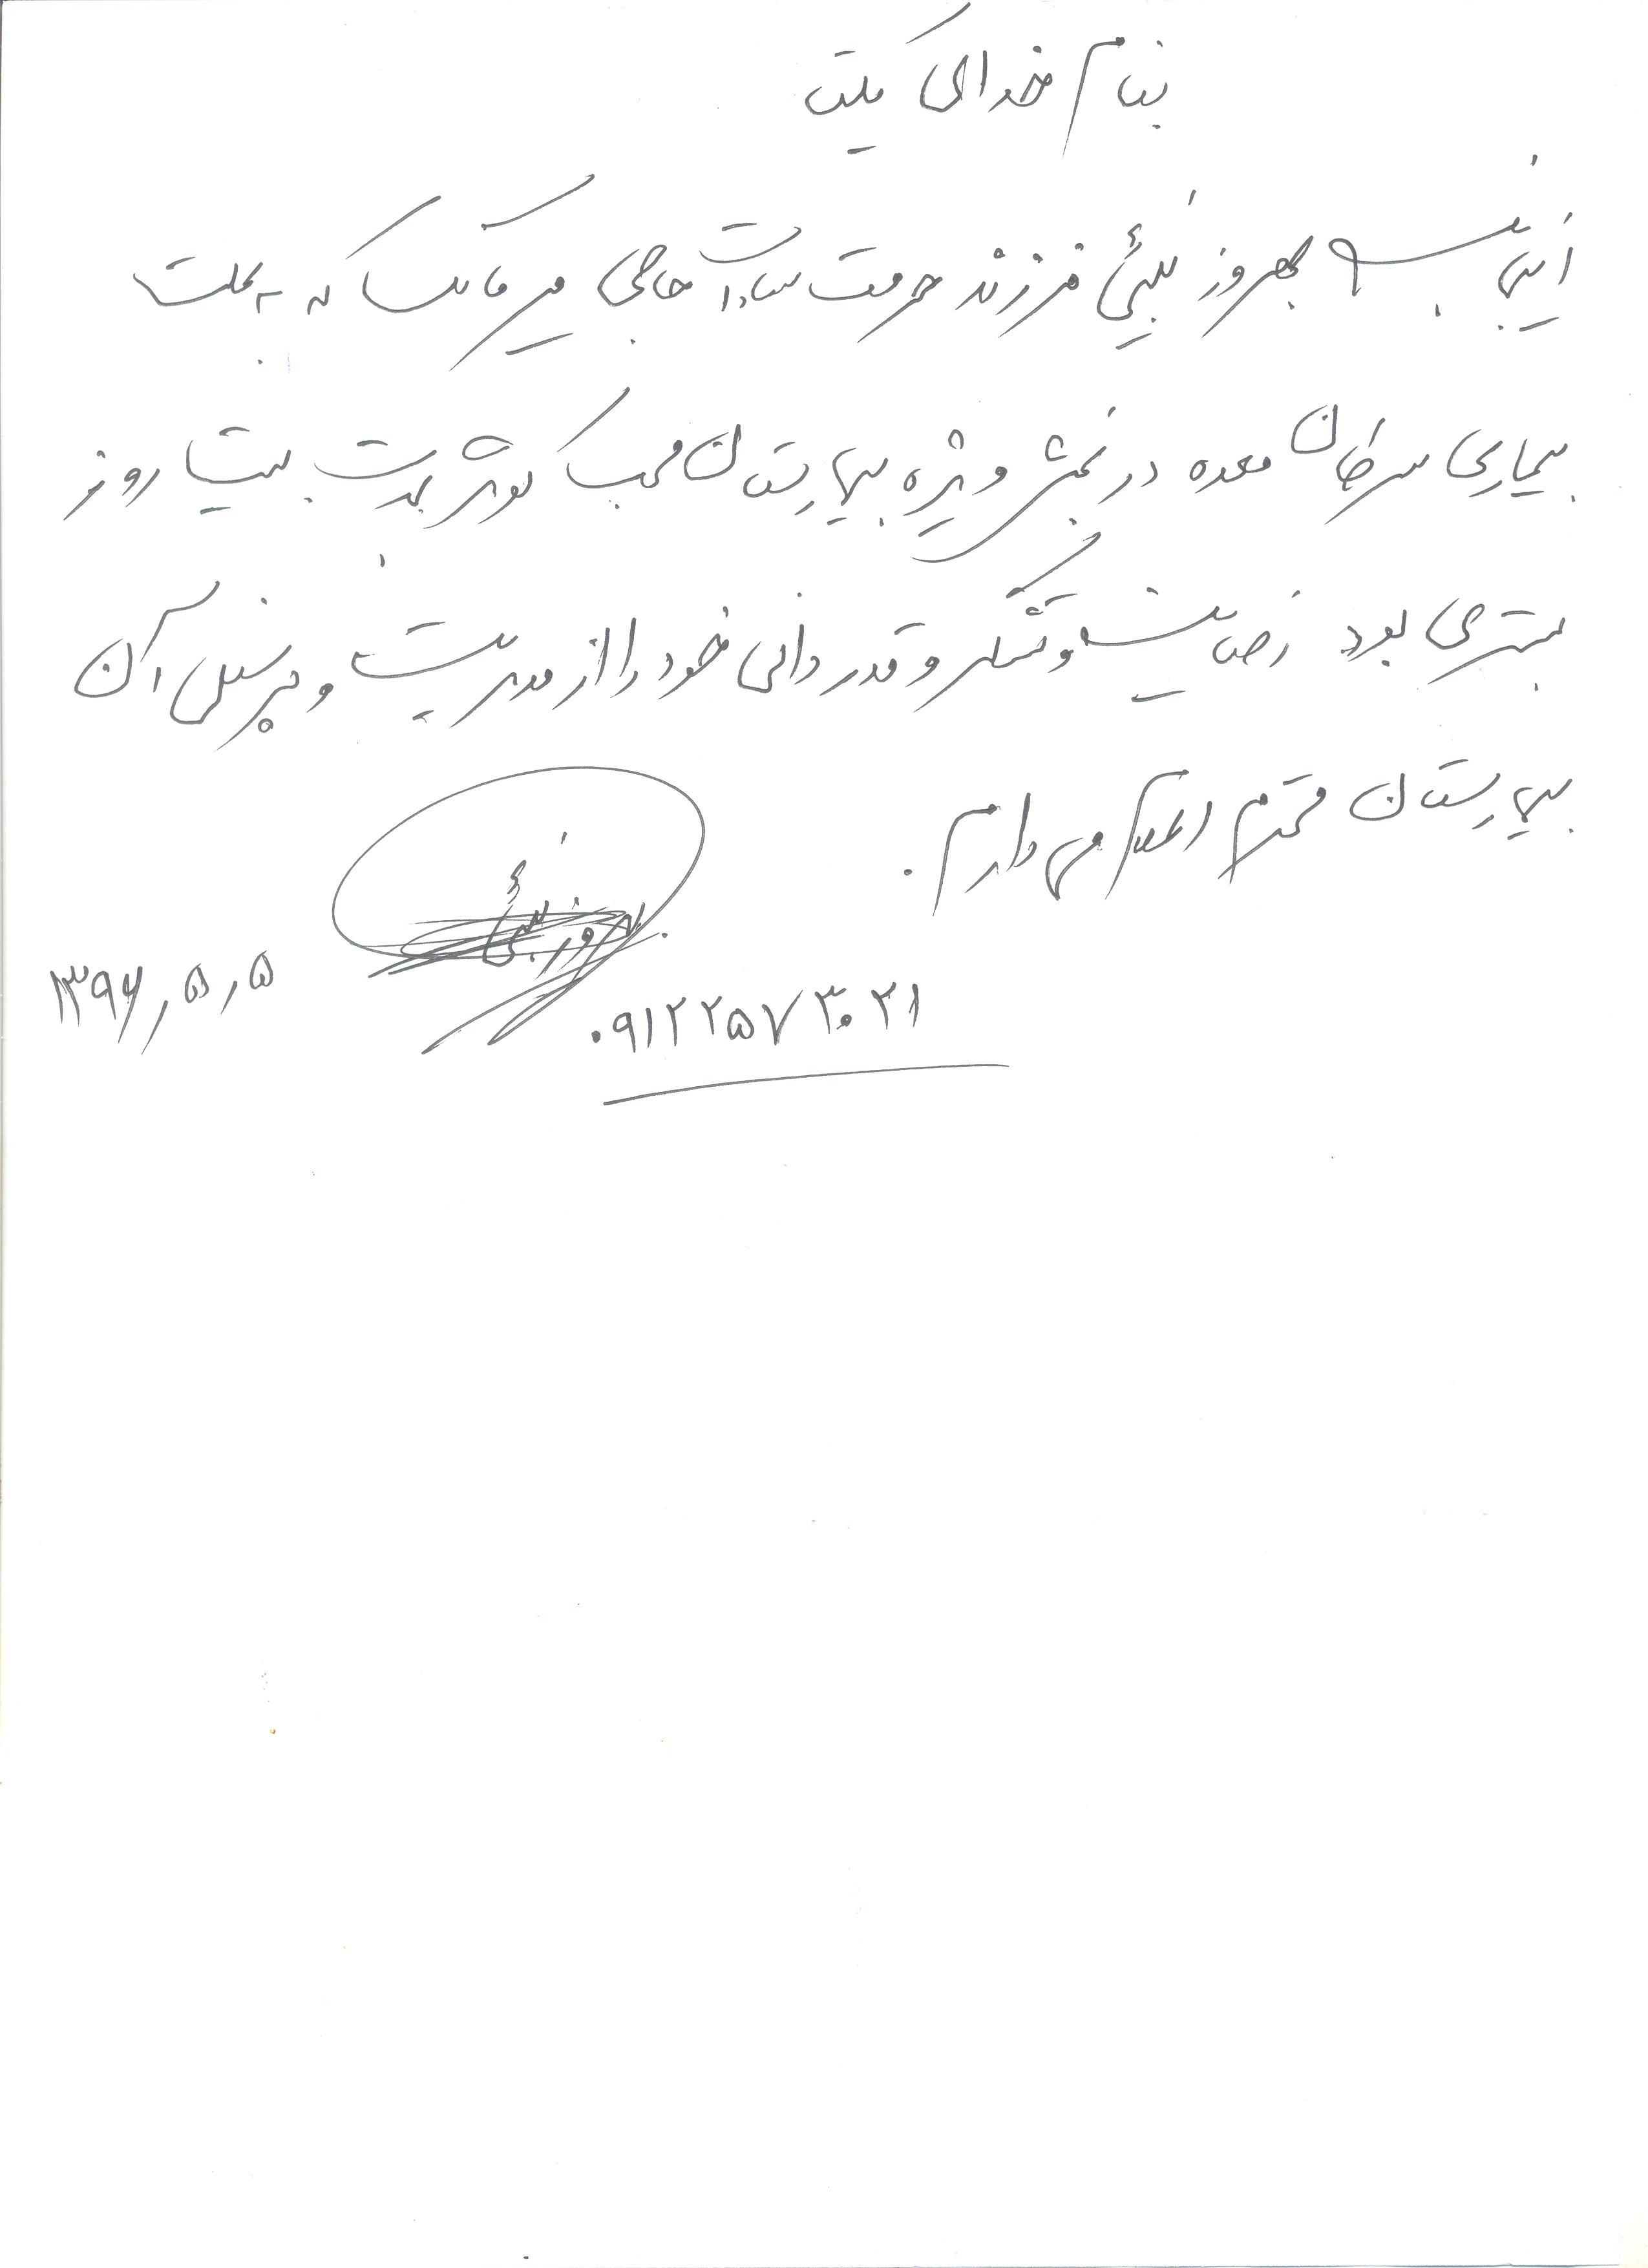 بنام خدای یکتا
اینجانب بهروز نبئی فرزند حرمت سادات حاجی میر که به علت
بیماری سرطان معده در بخش ویژه بیمارستان محب کوثر بمدت بیست روز
بستری بود رضایت و تشکر و قدردانی خود را از مدیریت و پرسنل آن
بیمارستان محترم اعلام می دارم.
بهروز نبئی
۱۳۹۶٫۵٫۵
۰۹۱۲۲۵۷۳۰۲۱